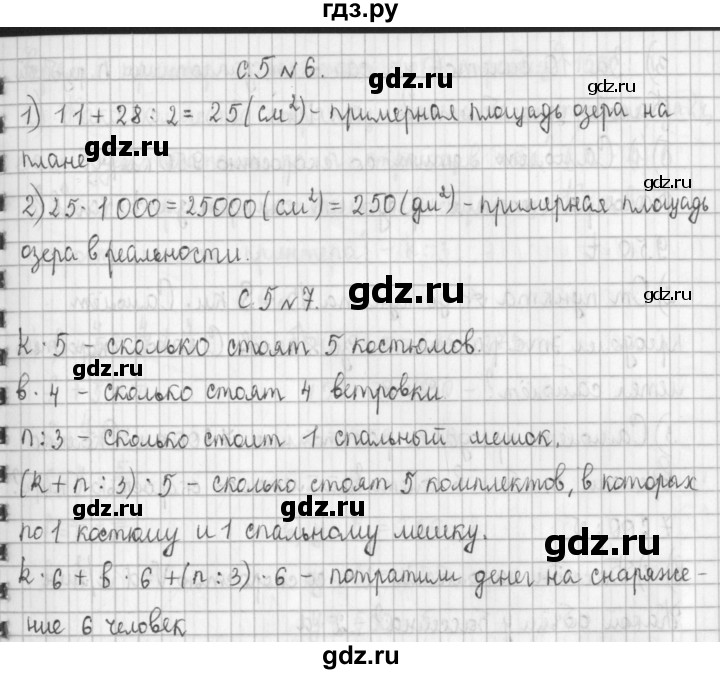 гдз.ру
С.5 №6.
gdz.ru
gdz.ru
1) 11 + 28 : 2 = 25 (см²) - примерная площадь озера на
плане
gdz.ru
gdz.ru
2) 25 · 1 000 = 25000 (см²) = 250 (дм²) - примерная площадь
озера в реальности.
С.5 №7.
gdz.ru
gdz.ru
k · 5 - сколько стоят 5 костюмов.
gdz.ru
в · 4 - сколько стоят 4 ветровки
n : 3 - сколько стоит 1 спальный мешок.
(k + n : 3) · 5 - сколько стоят 5 комплектов, в которых
gdz.ru
по 1 костюму и 1 спальному мешку.
gdz.ru
k · 6 + в · 6 + (n : 3) · 6 - потратили денег на снаряже-
ние 6 человек
gdz.ru